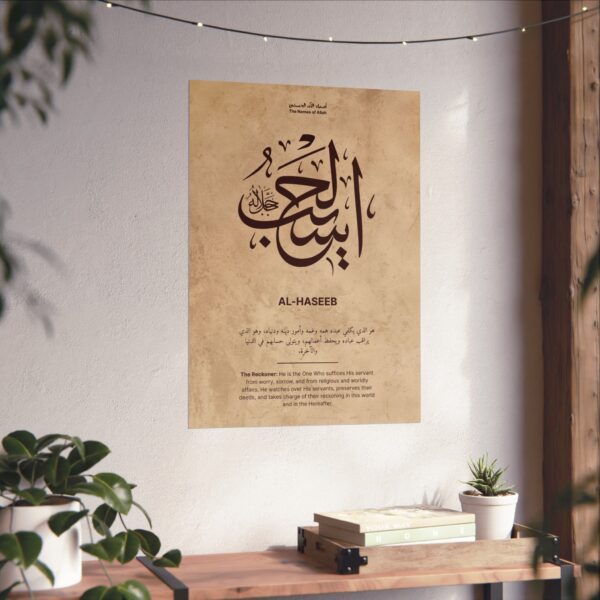 أسماء الله الحسنى
The Names of Allah
الحسيب
جل جلاله
AL-HASEEB
هو الذي يكفي عبده همه وغمه وأمور دينه ودنياه، وهو الذي
يراقب عباده ويحفظ أعمالهم، ويتولى حسابهم في الدنيا
والآخرة.
The Reckoner: He is the One Who suffices His servant
from worry, sorrow, and from religious and worldly
affairs. He watches over His servants, preserves their
deeds, and takes charge of their reckoning in this world
and in the Hereafter.
HOME